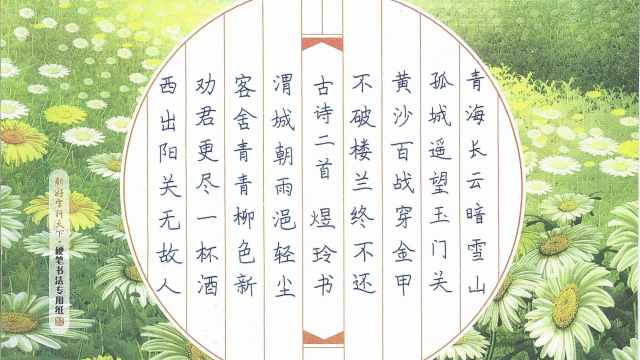 青海长云暗雪山
孤城遥望玉门关
黄沙百战穿金甲
不破楼兰终不还
古诗二首 煜玲书
渭城朝雨浥轻尘
客舍青青柳色新
劝君更尽一杯酒
西出阳关无故人
硬笔书法专用纸